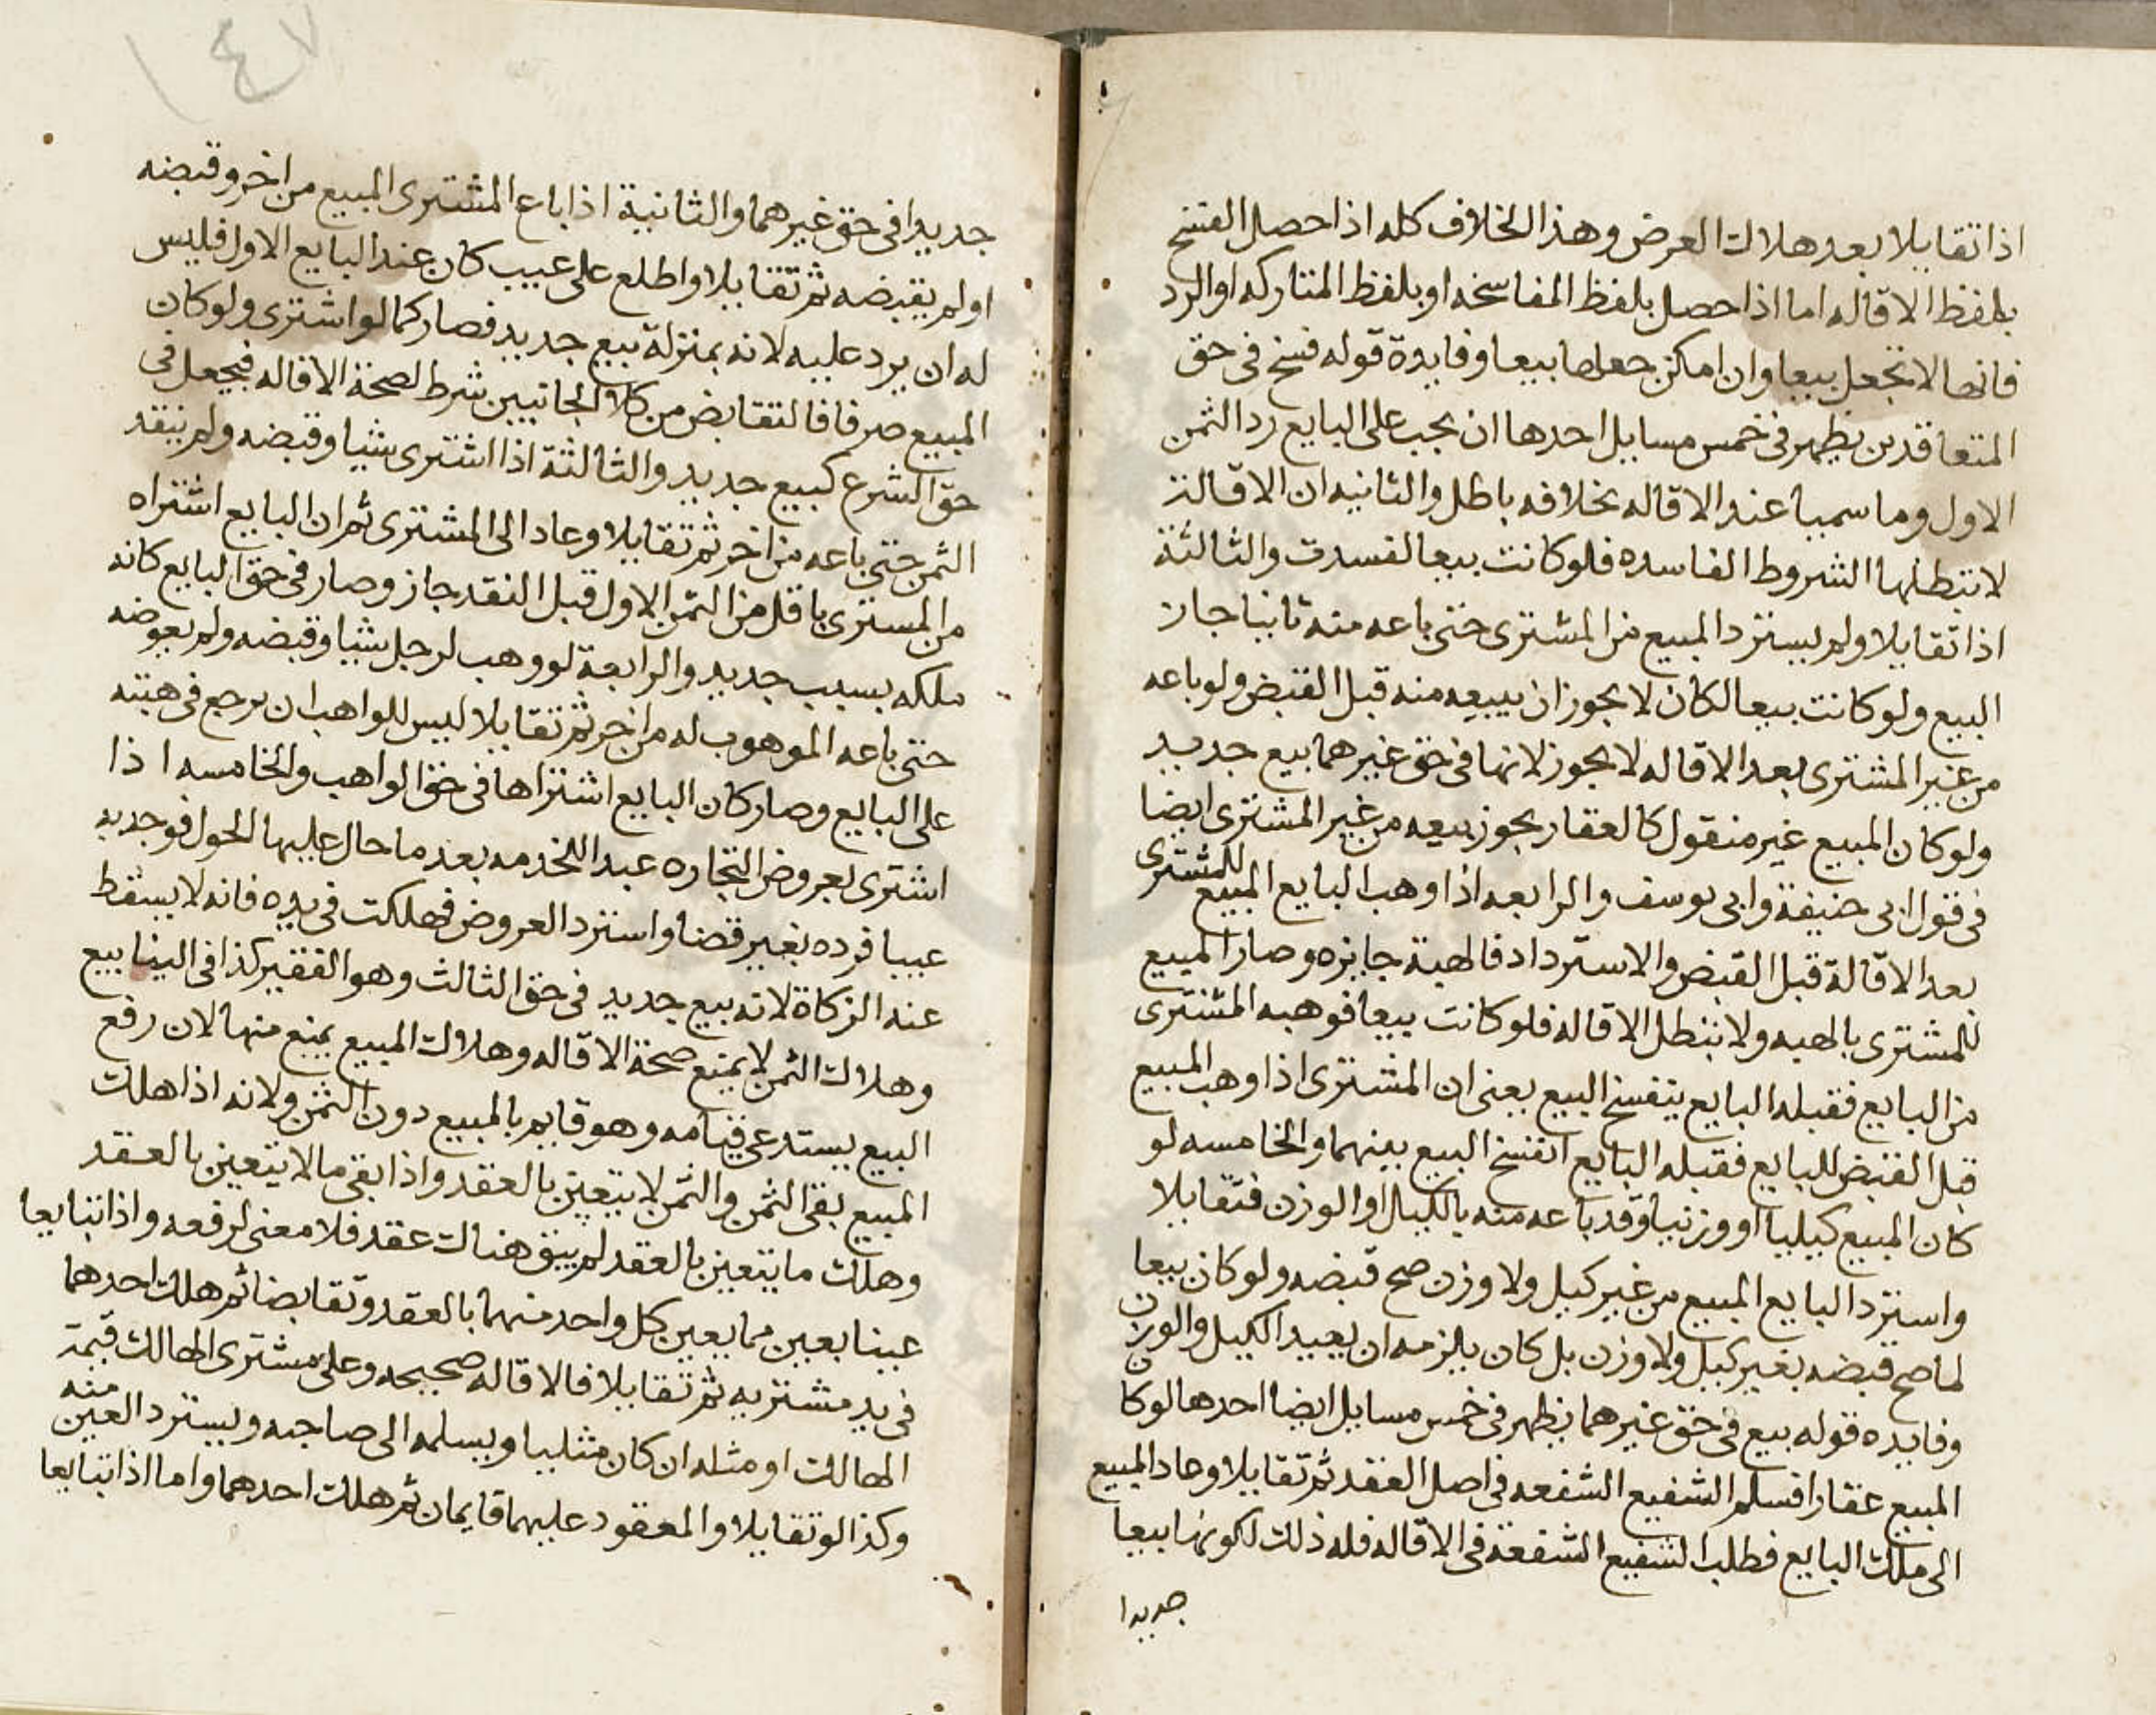 اذا تقايلا بعد هلاك العرض وهذا الخلاف كله اذا حصل الفسخ
بلفظ الاقاله اما اذا حصل بلفظ المفاسخه او بلفظ المتاركه او الرد
فانها لا تجعل بيعا وان امكن جعلها بيعا وفايدة قوله فسخ في حق
المتعاقدين يظهر في خمس مسايل احدها ان يجب على البايع رد الثمن
الاول وما سميا عند الاقاله بخلافه باطل والثانيه ان الاقالة
لا تبطلها الشروط الفاسده فلو كانت بيعا لفسدت والثالثة
اذا تقايلا ولم يسترد المبيع من المشترى حتى باعه منه ثانيا جاز
البيع ولو كانت بيعا لكان لا يجوز ان يبيعه منه قبل القبض ولو باعه
من غير المشترى بعد الاقاله لا يجوز لانها في حق غيرهما بيع جديد
ولو كان المبيع غير منقول كالعقار يجوز بيعه من غير المشترى ايضا
في قول ابى حنيفة وابى يوسف والرابعه اذا وهب البايع المبيع للمشترى
بعد الاقالة قبل القبض والاسترداد فالهبة جايزه وصار المبيع
للمشترى بالهبه ولا تبطل الاقاله فلو كانت بيعا فوهبه المشترى
من البايع فقبله البايع ينفسخ البيع يعنى ان المشترى اذا وهب المبيع
قبل القبض للبايع فقبله البايع انفسخ البيع بينهما والخامسه لو
كان المبيع كيليا او وزنيا وقد باعه منه بالكيل او الوزن فتقايلا
واسترد البايع المبيع من غير كيل ولا وزن صح قبضه ولو كان بيعا
لما صح قبضه بغير كيل ولا وزن بل كان يلزمه ان يعيد الكيل والوزن
وفايده قوله بيع في حق غيرهما يظهر في خمس مسايل ايضا احدها لو كان
المبيع عقارا فسلم الشفيع الشفعه في اصل العقد ثم تقايلا وعاد المبيع
الى ملك البايع فطلب الشفيع الشفعة في الاقاله فله ذلك لكونها بيعا
جديدا
١٤٧
جديدا في حق غيرهما والثانية اذا باع المشترى المبيع من اخر وقبضه
او لم يقبضه ثم تقايلا واطلع على عيب كان عند البايع الاول فليس
له ان يرد عليه لانه بمنزلة بيع جديد فصار كما لو اشترى ولو كان
المبيع صرفا فالتقابض من كلا الجانبين شرط لصحة الاقاله فيجعل في
حق الشرع كبيع جديد والثالثة اذا اشترى شيا وقبضه ولم ينقد
الثمن حتى باعه من اخر ثم تقايلا وعاد الى المشترى ثم ان البايع اشتراه
من المسترى باقل من الثمن الاول قبل النقد جاز وصار في حق البايع كانه
ملكه بسبب جديد والرابعة لو وهب لرجل شيا وقبضه ولم يعوضه
حتى باعه الموهوب له من اخر ثم تقايلا ليس للواهب ان يرجع في هبته
على البايع وصار كان البايع اشتراها في حق الواهب والخامسه اذا
اشترى بعروض التجاره عبدا للخدمه بعد ما حال عليها الحول فوجد به
عيبا فرده بغير قضا واسترد العروض فهلكت في يده فانه لا يسقط
عنه الزكاة لانه بيع جديد في حق الثالث وهو الفقير كذا في الينابيع
وهلاك الثمن لا يمنع صحة الاقاله وهلاك المبيع يمنع منها لان رفع
البيع يستدعى قيامه وهو قايم بالمبيع دون الثمن ولانه اذا هلك
المبيع بقى الثمن والثمن لا يتعين بالعقد واذا بقى ما لا يتعين بالعقد
وهلك ما يتعين بالعقد لم يبق هناك عقد فلا معنى لرفعه واذا تبايعا
عينا بعين مما يعين كل واحد منهما بالعقد وتقابضا ثم هلك احدهما
في يد مشتريه ثم تقايلا فالاقاله صحيحه وعلى مشترى الهالك قيمة
الهالك او مثله ان كان مثليا ويسلمه الى صاحبه ويسترد العين منه
وكذا لو تقايلا والمعقود عليهما قايمان ثم هلك احدهما واما اذا تبايعا